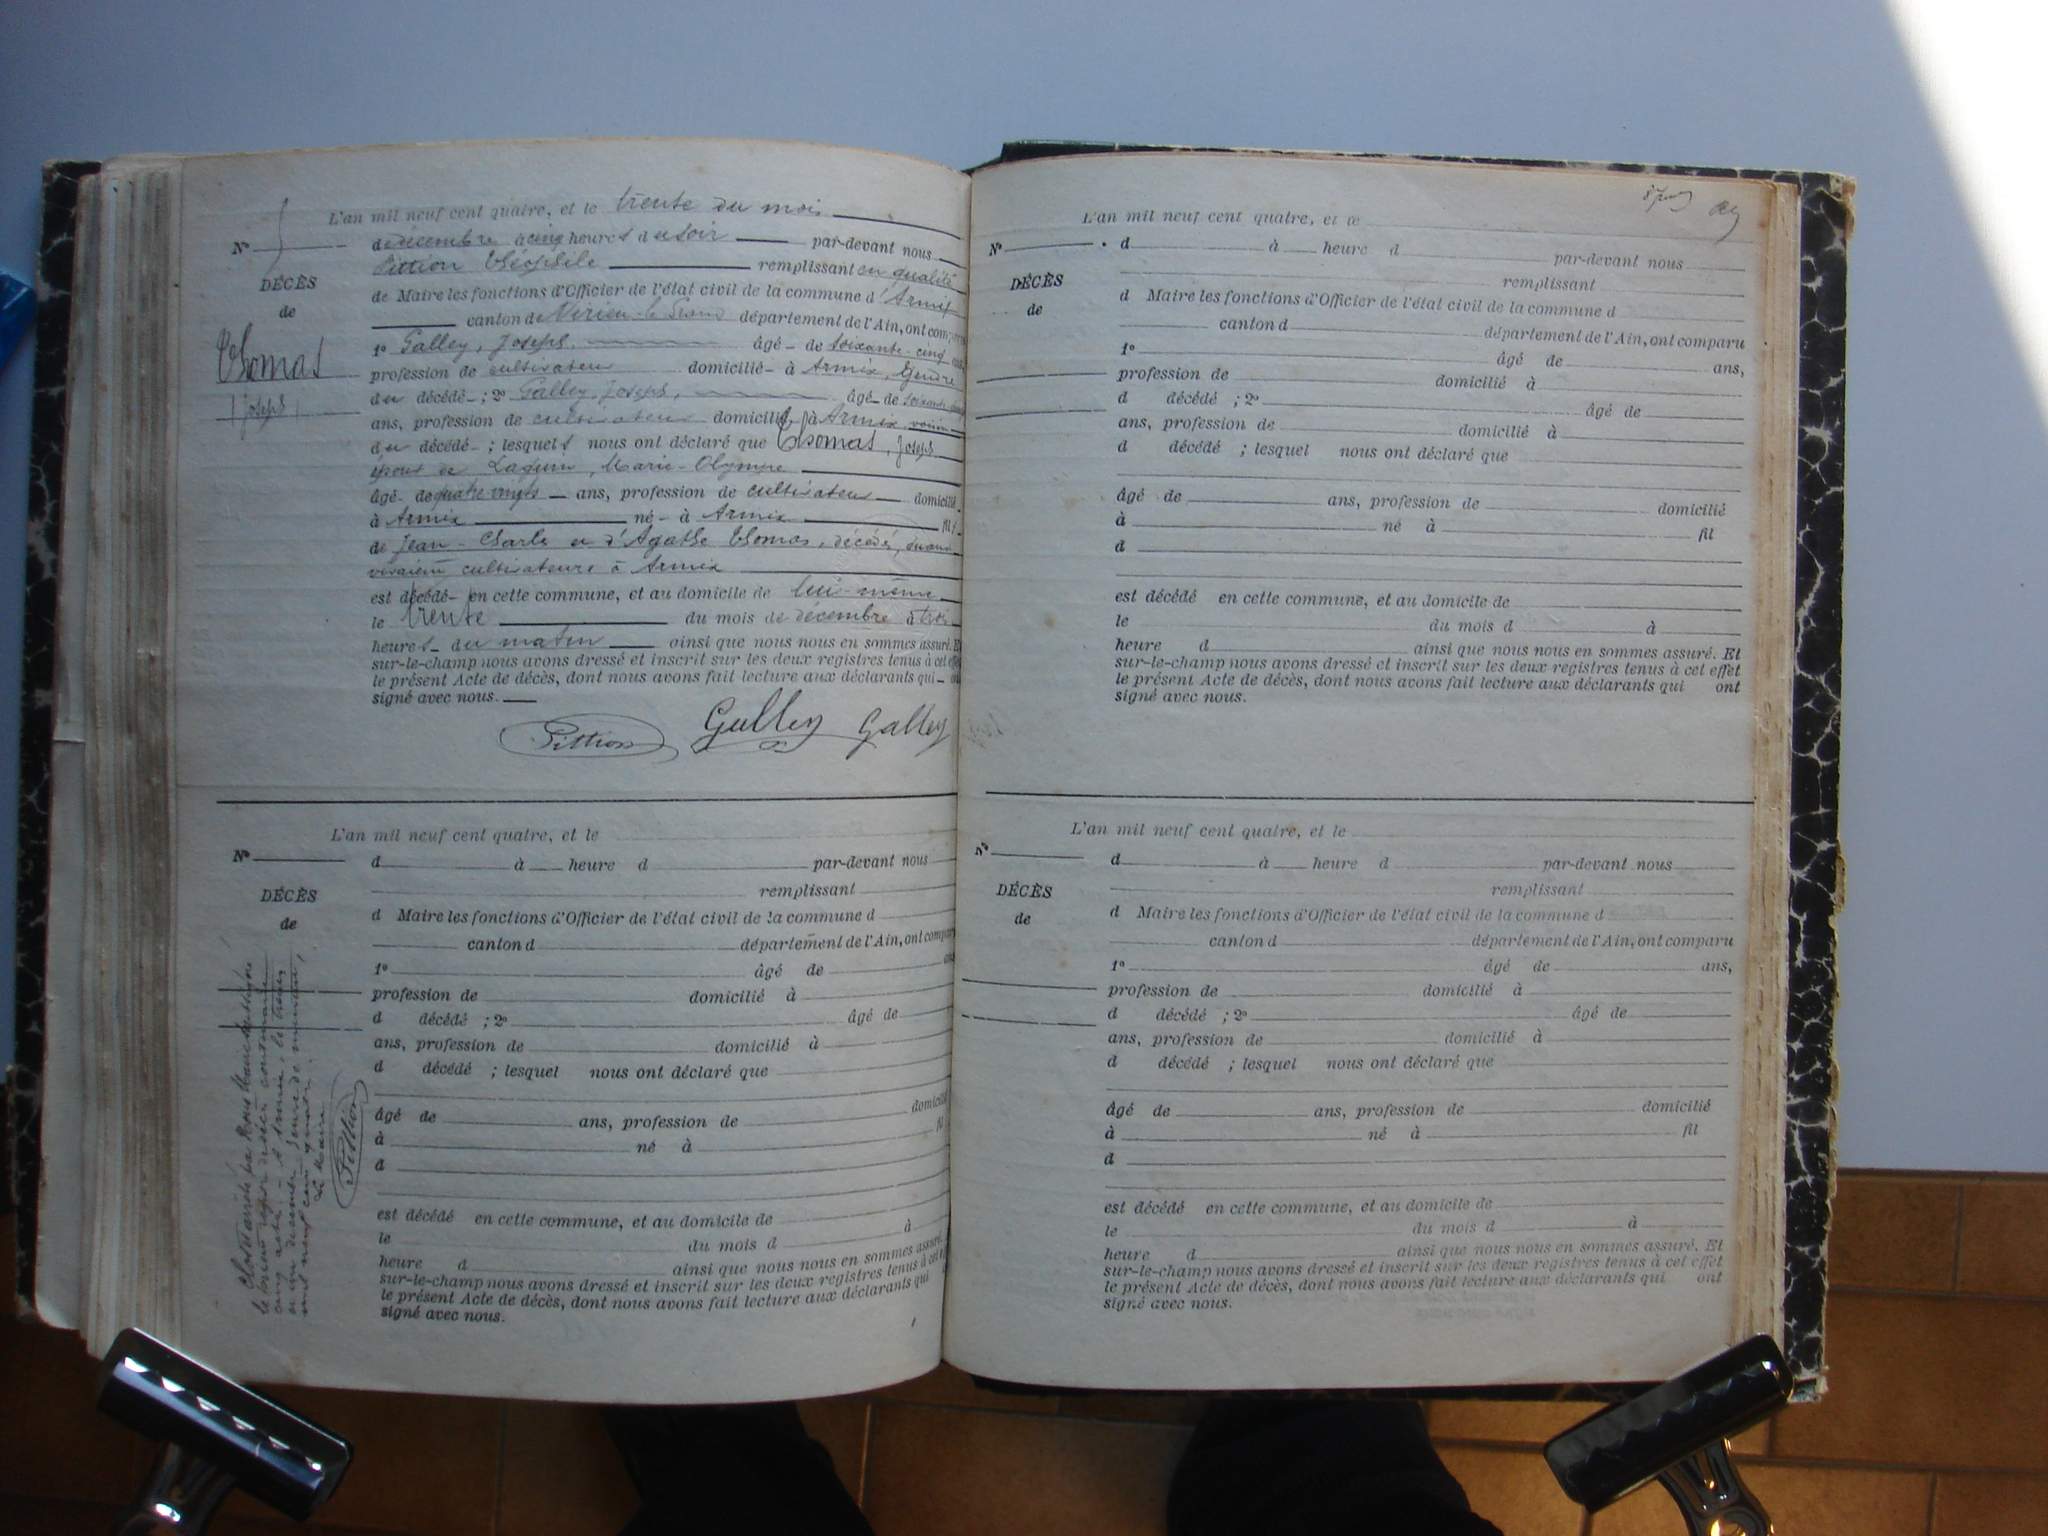 L'an mil neuf cent quatre, et le trente du mois
N° 5 de décembre à cinq heures du soir par-devant nous
Pittion Théophile remplissant en qualité
DÉCÈS
de Maire les fonctions d'Officier de l'état civil de la commune d'Armix
de
canton de Virieu-le-Grand département de l'Ain, ont comparu
1° Galley, Joseph âgé de soixante-cinq ans,
Thomas
profession de cultivateur domicilié à Armix, gendre
Joseph
du décédé ; 2° Galley, Joseph, âgé de soixante
ans, profession de cultivateur domicilié à Armix, voisin
du décédé ; lesquels nous ont déclaré que Thomas, Joseph
époux de Marie-Olympe
âgé de quatre vingts ans, profession de cultivateur domicilié
à Armix né à Armix fils
de Jean-Charle et d'Agathe Thomas, décédés, quand
vivaient cultivateurs à Armix
est décédé en cette commune, et au domicile de lui-même
le trente du mois de décembre à trois
heures du matin ainsi que nous nous en sommes assuré. Et
sur-le-champ nous avons dressé et inscrit sur les deux registres tenus à cet effet
le présent Acte de décès, dont nous avons fait lecture aux déclarants qui ont
signé avec nous.
Pittion Galley Galley
L'an mil neuf cent quatre, et le
N° d à heure d par-devant nous
remplissant
DÉCÈS
d Maire les fonctions d'Officier de l'état civil de la commune d
de
canton d département de l'Ain, ont comparu
1° âgé de ans
profession de domicilié à
d décédé ; 2° âgé de
ans, profession de domicilié à
d décédé ; lesquel nous ont déclaré que
âgé de ans, profession de domicilié
à né à fil
d
est décédé en cette commune, et au domicile de
le du mois d à
heure d ainsi que nous nous en sommes assuré.
sur-le-champ nous avons dressé et inscrit sur les deux registres tenus à cet
le présent Acte de décès, dont nous avons fait lecture aux déclarants qui
signé avec nous.
Clos et arrêté par Nous Maire
le présent registre de décès contenant
cinq actes. À Armix, le trente
et un décembre mil neuf cent quatre.
Le Maire
Pittion
L'an mil neuf cent quatre, et le
N° d à heure d par-devant nous
remplissant
DÉCÈS
d Maire les fonctions d'Officier de l'état civil de la commune d
de
canton d département de l'Ain, ont comparu
1° âgé de ans,
profession de domicilié à
d décédé ; 2° âgé de
ans, profession de domicilié à
d décédé ; lesquel nous ont déclaré que
âgé de ans, profession de domicilié
à né à fil
d
est décédé en cette commune, et au domicile de
le du mois d à
heure d ainsi que nous nous en sommes assuré. Et
sur-le-champ nous avons dressé et inscrit sur les deux registres tenus à cet effet
le présent Acte de décès, dont nous avons fait lecture aux déclarants qui ont
signé avec nous.
L'an mil neuf cent quatre, et le
N° d à heure d par-devant nous
remplissant
DÉCÈS
d Maire les fonctions d'Officier de l'état civil de la commune d
de
canton d département de l'Ain, ont comparu
1° âgé de ans,
profession de domicilié à
d décédé ; 2° âgé de
ans, profession de domicilié à
d décédé ; lesquel nous ont déclaré que
âgé de ans, profession de domicilié
à né à fil
d
est décédé en cette commune, et au domicile de
le du mois d à
heure d ainsi que nous nous en sommes assuré. Et
sur-le-champ nous avons dressé et inscrit sur les deux registres tenus à cet effet
le présent Acte de décès, dont nous avons fait lecture aux déclarants qui ont
signé avec nous.